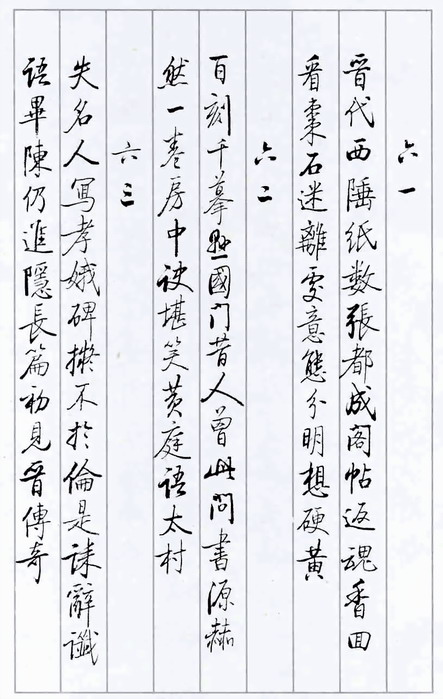 六一
晋代西陲纸数張都成阁帖返魂香回
看棗石迷離處意態分明想硬黄
六二
百刻千摹縣國门昔人曾此问書源赫
然一卷房中诀堪笑黄庭语太村
六三
失名人寫孝娥碑擬不於倫是誄辭讖
语畢陳仍進隱長篇初見晋傳奇